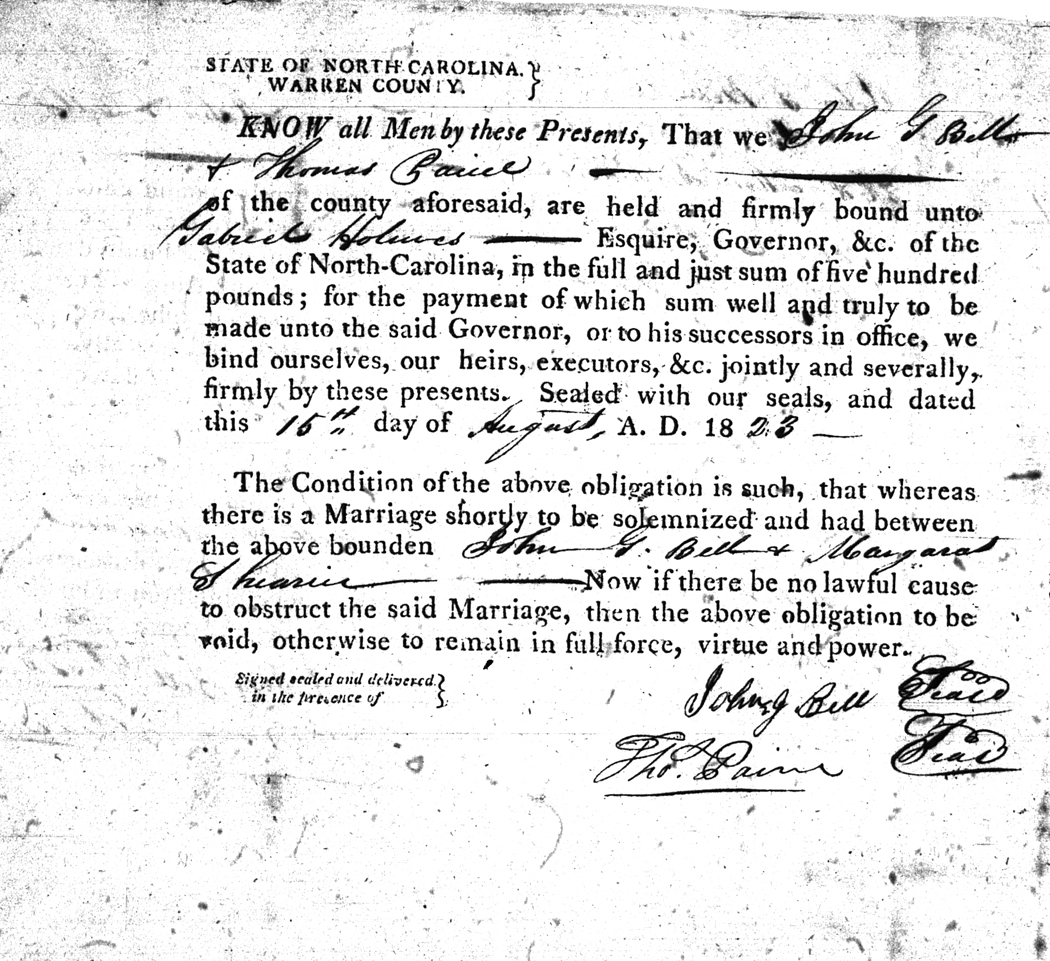 STATE OF NORTH-CAROLINA. }
WARREN COUNTY.
KNOW all Men by these Presents, That we John G. Bell
& Thomas Paine
of the county aforesaid, are held and firmly bound unto
Gabriel Holmes Esquire, Governor, &c. of the
State of North-Carolina, in the full and just sum of five hundred
pounds; for the payment of which sum well and truly to be
made unto the said Governor, or to his successors in office, we
bind ourselves, our heirs, executors, &c. jointly and severally,
firmly by these presents. Sealed with our seals, and dated
this 15th day of August, A. D. 1823 —
The Condition of the above obligation is such, that whereas
there is a Marriage shortly to be solemnized and had between
the above bounden John G. Bell & Margaret
Now if there be no lawful cause
to obstruct the said Marriage, then the above obligation to be
void, otherwise to remain in full force, virtue and power.
Signed sealed and delivered }
in the presence of
John G Bell Seal
Thos. Paine Seal